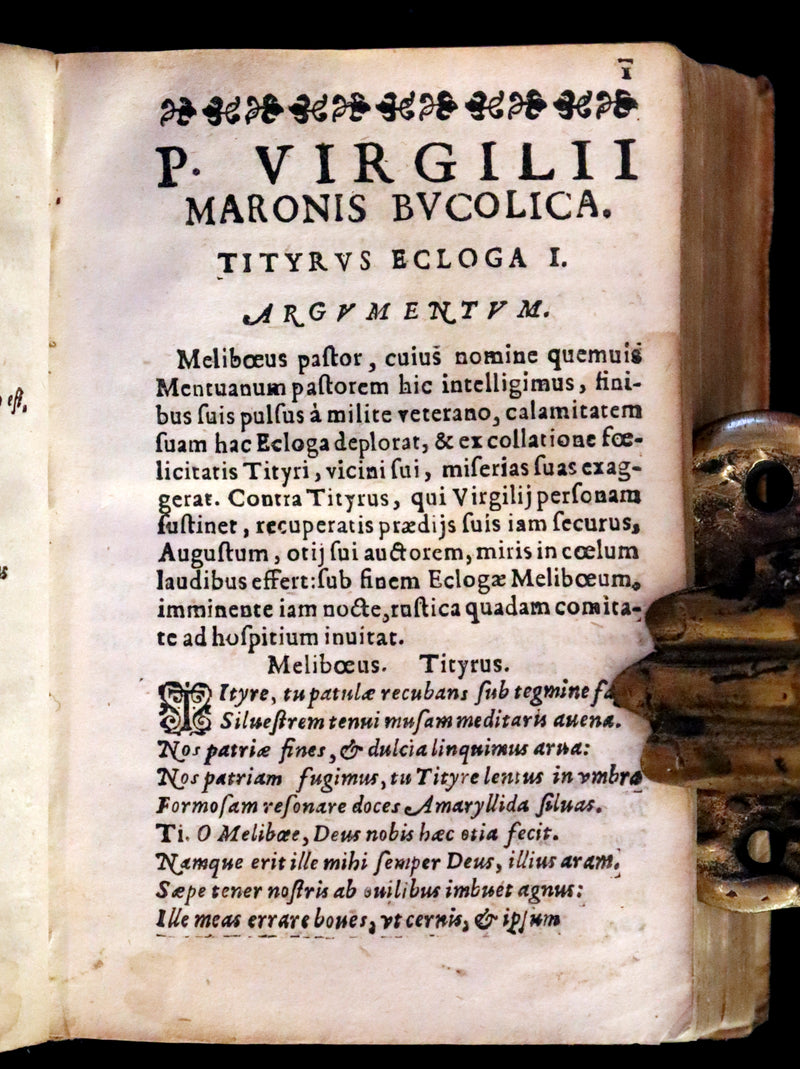 ī
P. VIRGILII
MARONIS BVCOLICA.
TITYRVS ECLOGA I.
ARGVMENTVM.
Melibœus paſtor, cuius nomine quemuis
Mentuanum paſtorem hic intelligimus, fini-
bus ſuis pulſus à milite veterano, calamitatem
ſuam hac Ecloga deplorat, & ex collatione fœ-
licitatis Tityri, vicini ſui, miſerias ſuas exag-
gerat. Contra Tityrus, qui Virgilij perſonam
ſuſtinet, recuperatis prædijs ſuis iam ſecurus,
Auguſtum, otij ſui auctorem, miris in cœlum
laudibus effert: ſub finem Eclogæ Melibœum,
imminente iam nocte, ruſtica quadam comita-
te ad hoſpitium inuitat.
Melibœus. Tityrus.
TItyre, tu patulæ recubans ſub tegmine
Silueſtrem tenui muſam meditaris auena.
Nos patriæ fines, & dulcia linquimus arua:
Nos patriam fugimus, tu Tityre lentus in vmbra
Formoſam reſonare doces Amaryllida ſiluas.
Ti. O Melibœe, Deus nobis hæc otia fecit.
Namque erit ille mihi ſemper Deus, illius aram.
Sæpe tener noſtris ab ouilibus imbuet agnus:
Ille meas errare boues, vt cernis, & ipſum
eſt,